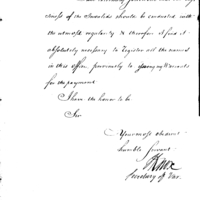 ness of the Invalids should be conducted with
the utmost regularity & therefore I find it
absolutely necessary to Register all the names
in this office previously to giving Warrants
for the payment.
I have the honor to be
Sir
Your most obedient
humble Servant
HKnox
Secretary of War.